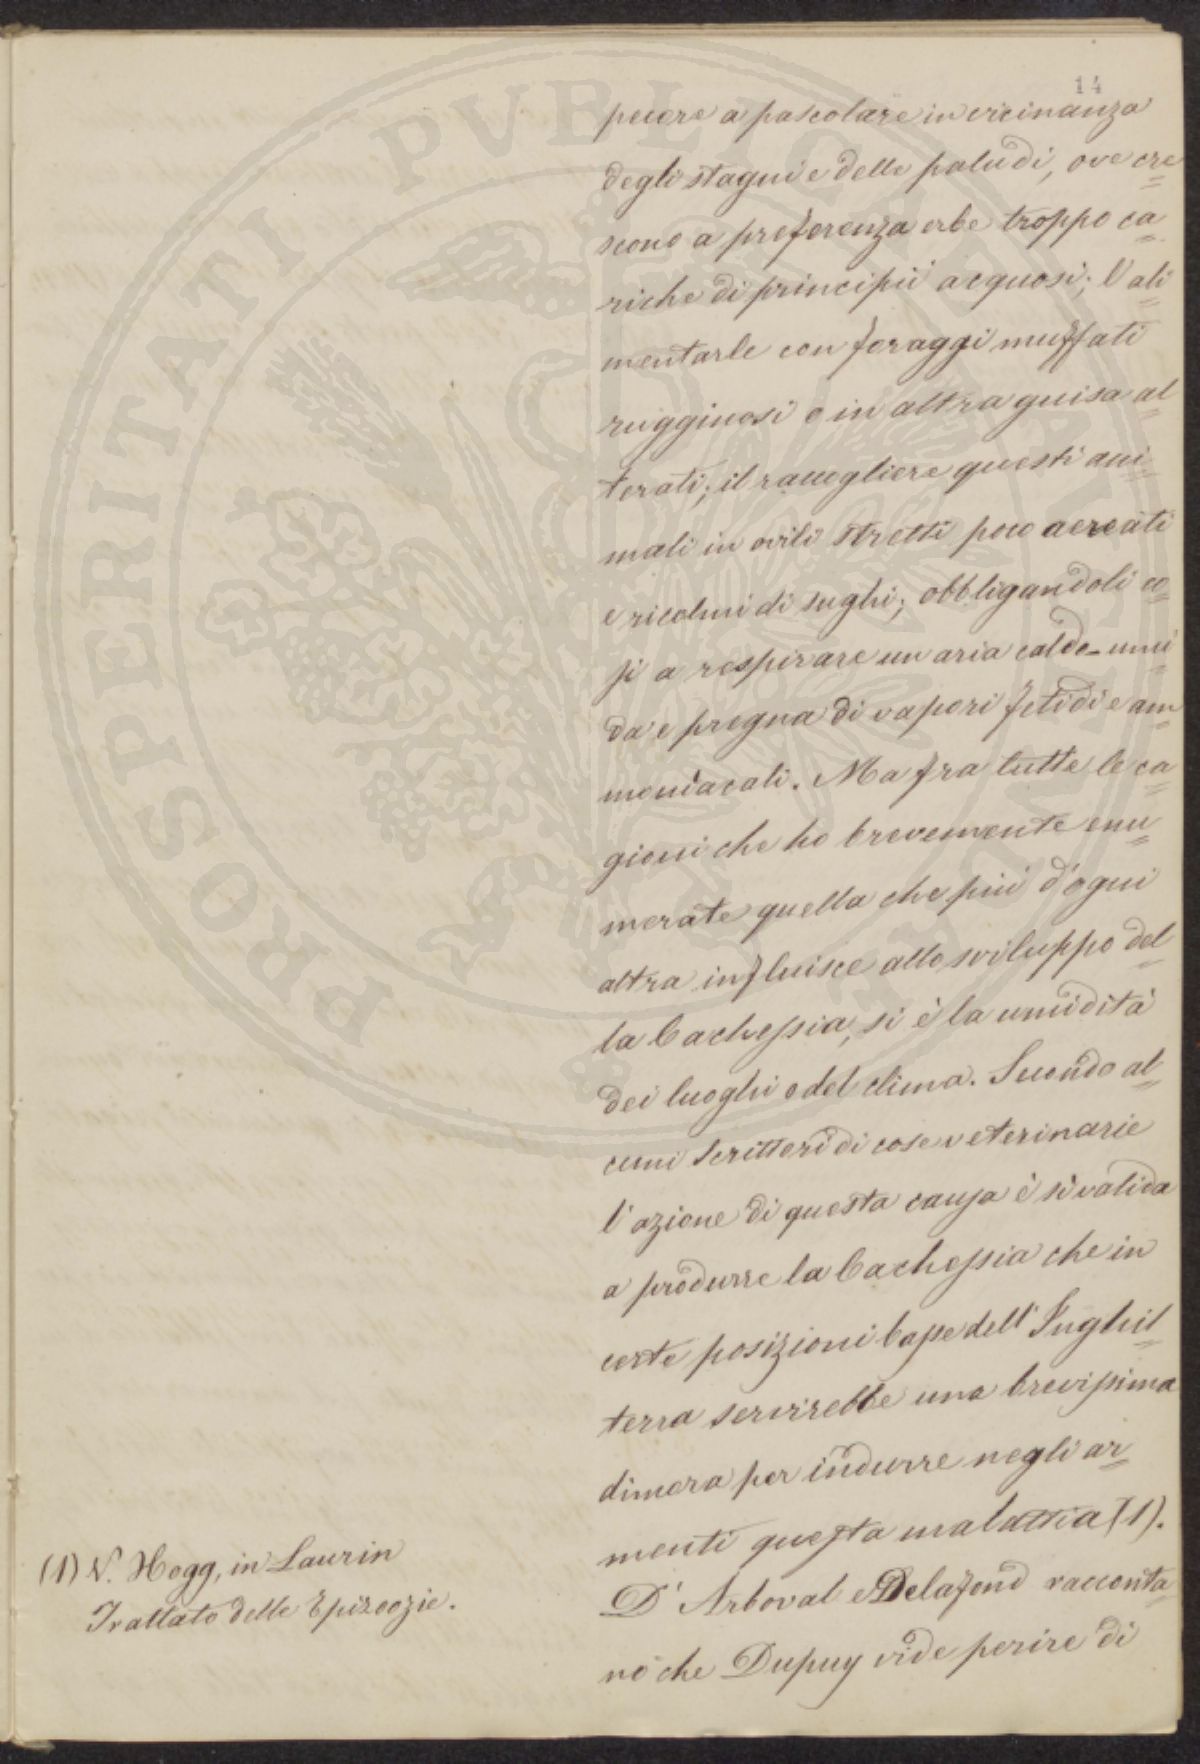 14
pecore a pascolare in vicinanza
degli stagni e delle paludi, ove cre=
scono a preferenza erbe troppo ca=
riche di principii acquosi; l'ali=
mentarle con foraggi muffati
rugginosi o in altra guisa al=
terati; il raccogliere questi ani=
mali in ovili stretti poco aereati
e ricolmi di sughi; obbligandoli co=
si a respirare un aria caldo-umi=
da e pregna di vapori fetidi e am=
moniacali. Ma fra tutte le ca=
gioni che ho brevemente enu=
merate quella che più d'ogni
altra influisce allo sviluppo del=
la Cachessia, si è la umidità
dei luoghi o del clima. Secondo al=
cuni Scrittori di cose veterinarie
l'azione di questa causa è sì valida
a produrre la Cachessia che in
certe posizioni basse dell'Inghil=
terra servirebbe una brevissima
dimora per indurre negli ar=
menti questa malattia (1).
D'Arboval e Delafond racconta=
no che Dupuy vide perire di
(1) V. Hogg, in Laurin
Trattato delle Epizoozie.
PROSPERITATI PVBLICAE